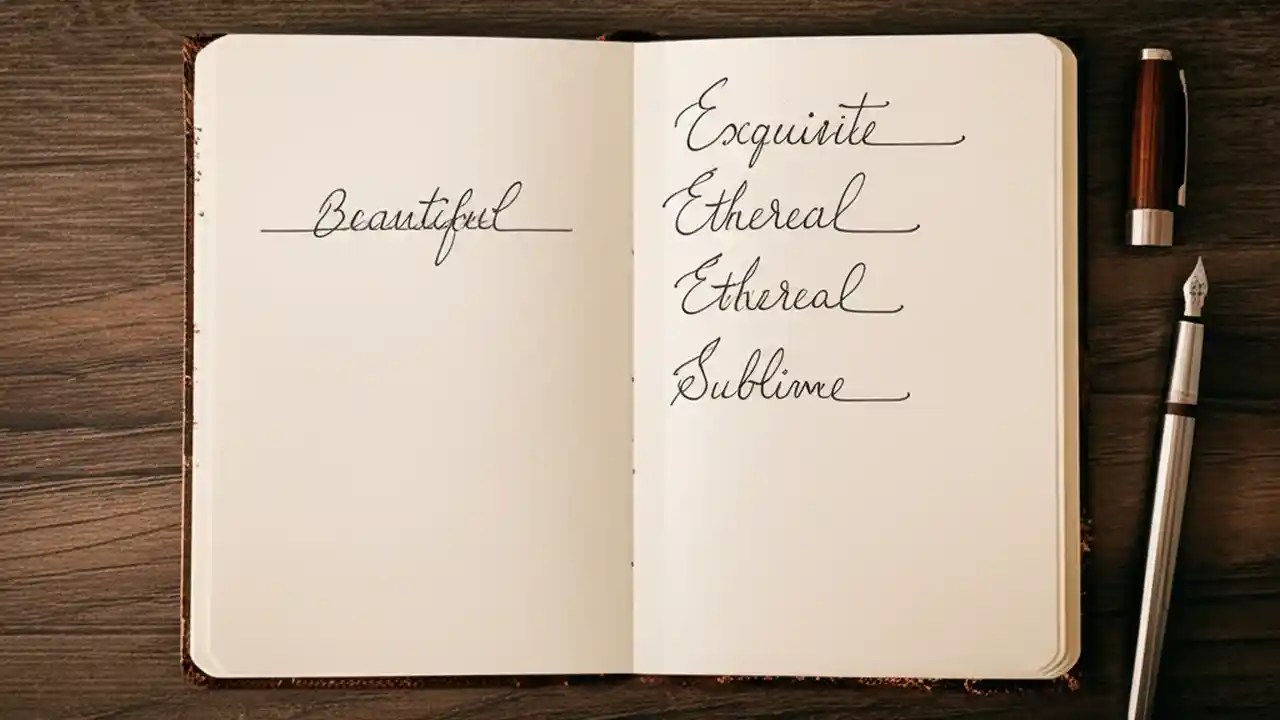 Beautiful
Exquisite
Ethereal
Ethereal
Sublime